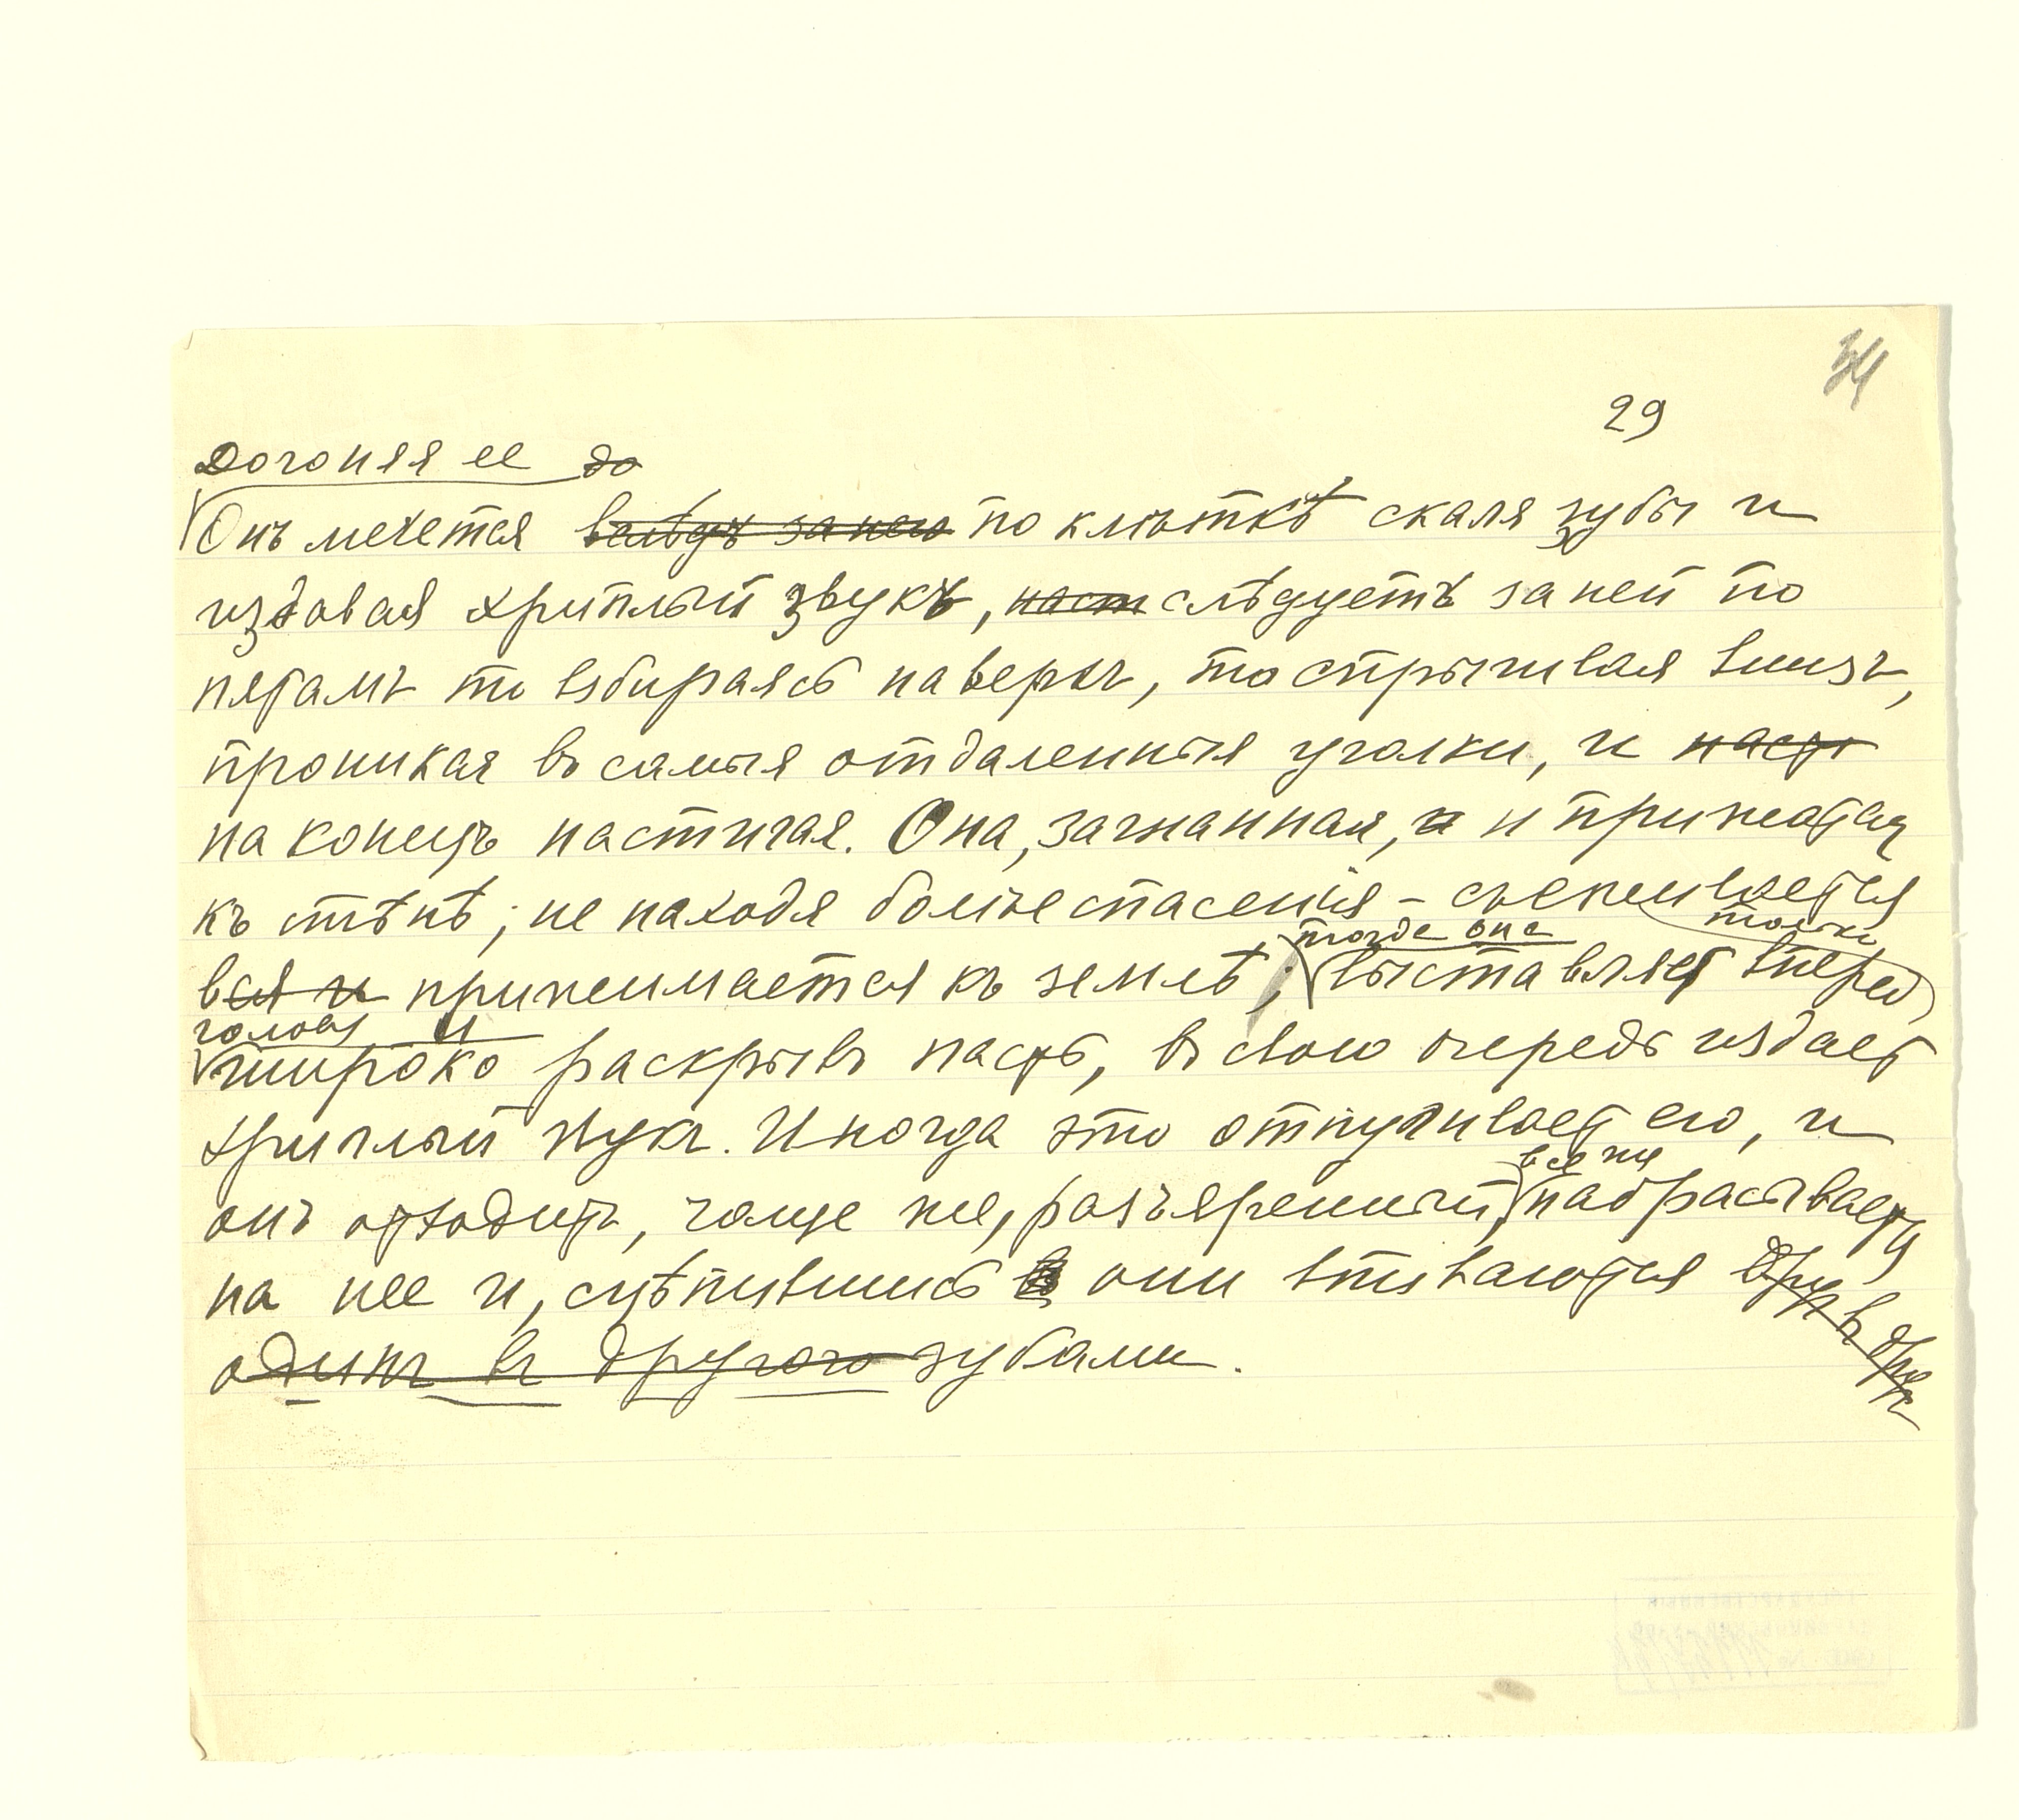 34
29
Догоняя ее до
Онъ мечется вслѣдъ за нею по клѣткѣ скаля зубы и
издавая хриплый звукъ, наст слѣдуетъ за ней по
пятамъ то взбираясь наверхъ, то спрыгивая внизъ,
проникая въ самыя отдаленныя уголки, и наст
на конецъ настигая. Она, загнанная, и и прижатая
къ стѣнѣ; не находя болѣе спасенія – съеживается
только
тогда она
вся и прижимается къ землѣ; выставляет вперед
голову и
широко раскрывъ пасть, въ свою очередь издает
хриплый звукъ. Иногда это отпугивает его, и
все же
онъ отходитъ, чаще же, разъяренный, набрасывается
на нее и, сцѣпившись они впиваются друг въ друга
одинъ въ другого зубами.